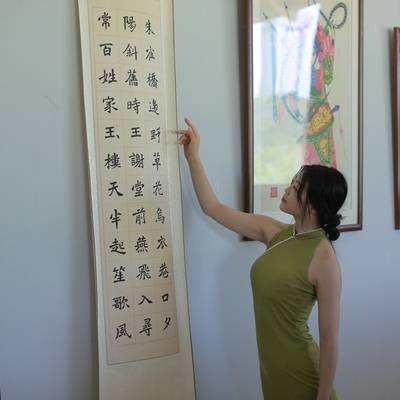 朱雀橋邊野草花烏衣巷口夕
陽斜舊時王謝堂前燕飛入尋
常百姓家玉樓天半起笙歌風